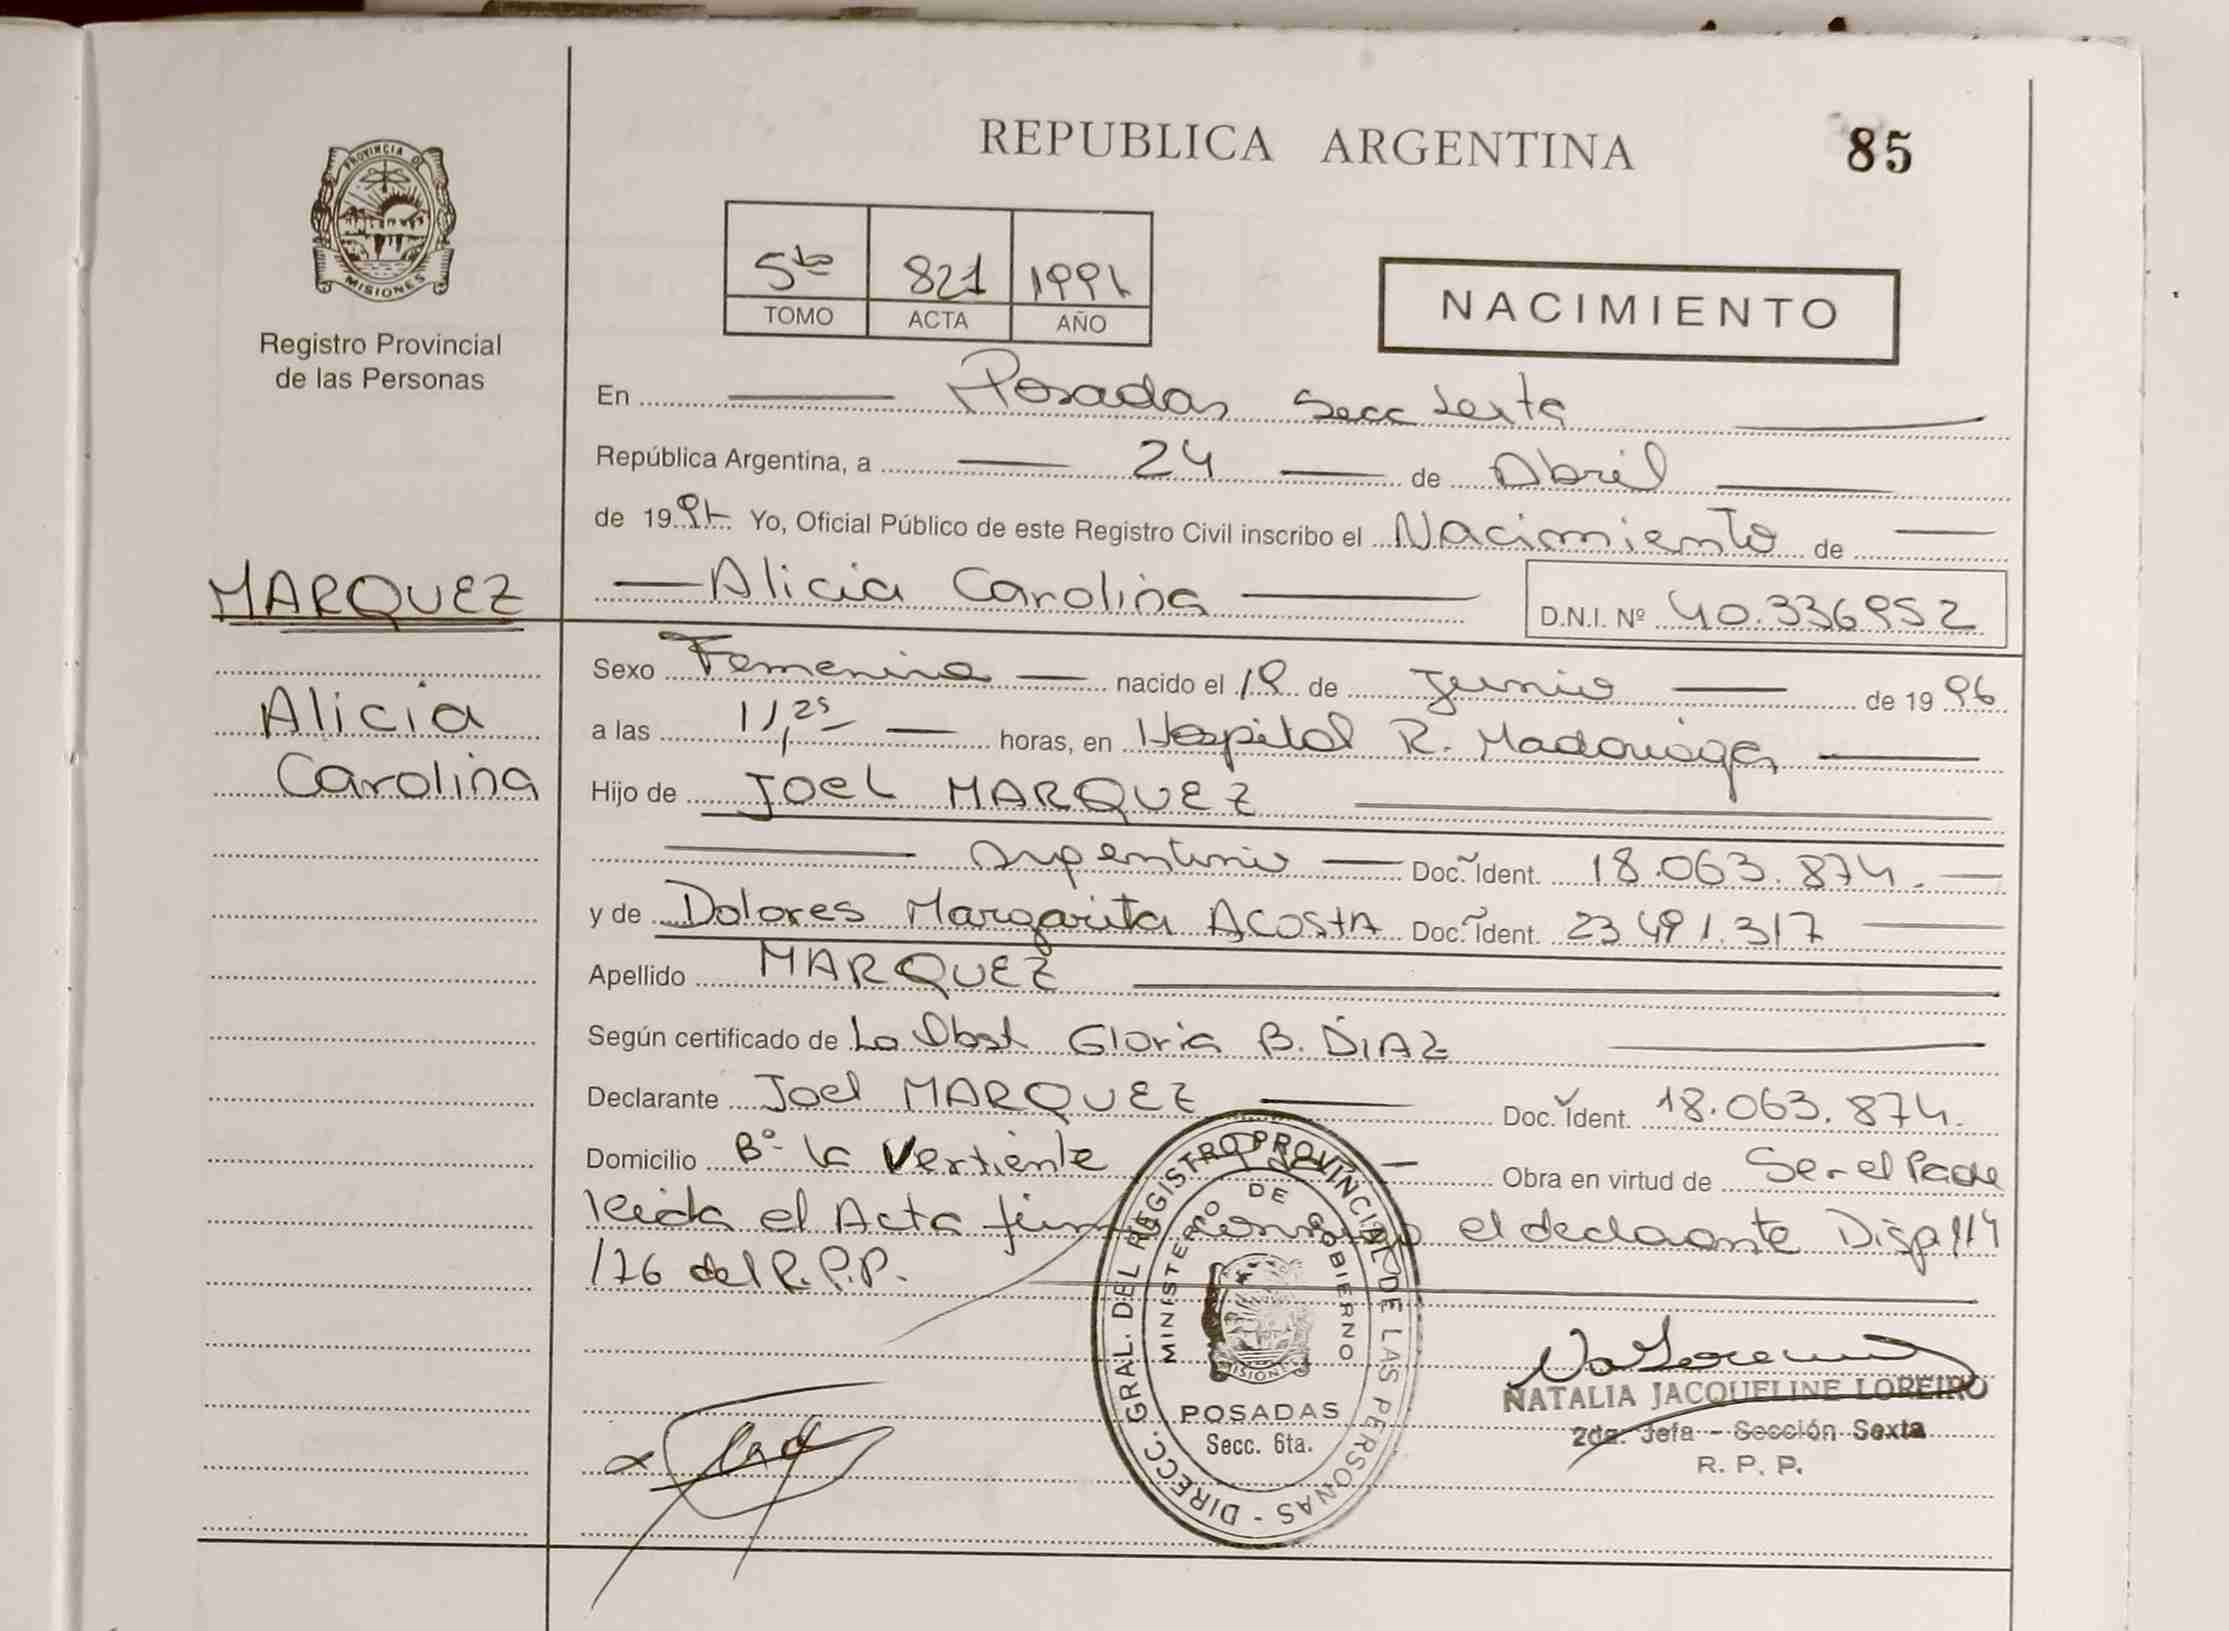 REPUBLICA ARGENTINA
85
PROVINCIA DE
MISIONES
Registro Provincial
de las Personas
5to 821 1997
TOMO ACTA AÑO
NACIMIENTO
En Posadas Secc Sexta
República Argentina, a 24 de Abril
de 1997 Yo, Oficial Público de este Registro Civil inscribo el Nacimiento de
MARQUEZ
Alicia Carolina D.N.I. Nº 40.336952
Sexo Femenino nacido el 19 de Junio de 1996
Alicia
a las 11,25 horas, en Hospital R. Madariaga
Carolina
Hijo de JOEL MARQUEZ
Argentino Doc. Ident. 18.063.874.
y de Dolores Margarita ACOSTA Doc. Ident. 23 491.317
Apellido MARQUEZ
Según certificado de La Obst Gloria B. DIAZ
Declarante Joel MARQUEZ Doc. Ident. 18.063.874.
Domicilio Bº la Vertiente Obra en virtud de Ser el Padre
leida el Acta firma conmigo el declarante Disp 114
/76 del R.P.P.
DIRECC. GRAL. DEL REGISTRO PROVINCIAL DE LAS PERSONAS -
MINISTERIO DE GOBIERNO
MISIONES
POSADAS
Secc. 6ta.
NATALIA JACQUELINE LOREIRO
2da. Jefa - Sección Sexta
R. P. P.